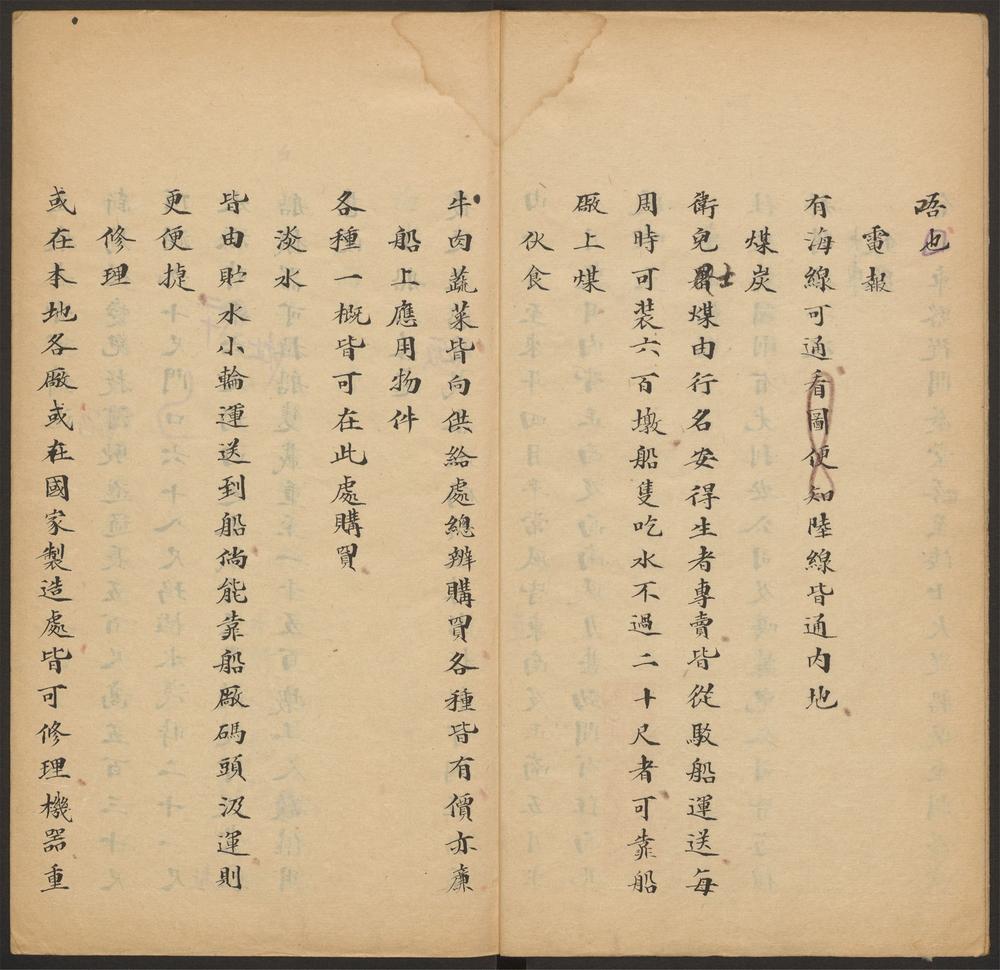 唔也
電報
有海線可通看圖便知陸線皆通內地
煤炭
衛皃士煤由行名安得生者專賣皆從駁船運送每
周時可裝六百墩船隻吃水不過二十尺者可靠船
厰上煤
伙食
牛肉蔬菜皆向供給處總辦購買各種皆有價亦廉
船上應用物件
各種一概皆可在此處購買
淡水
皆由貯水小輪運送到船倘能靠船厰碼頭汲運則
更便捷
修理
或在本地各厰或在國家製造處皆可修理機器重